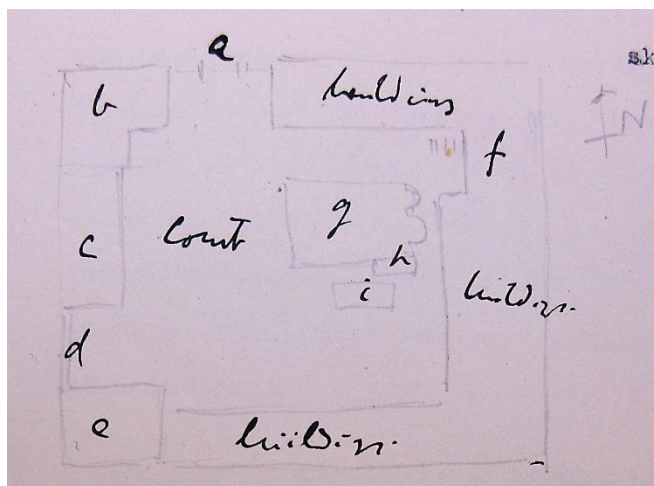 a
sk
b
buildings
N
f
g
c
court
h
i
buildings.
d
e
buildings.